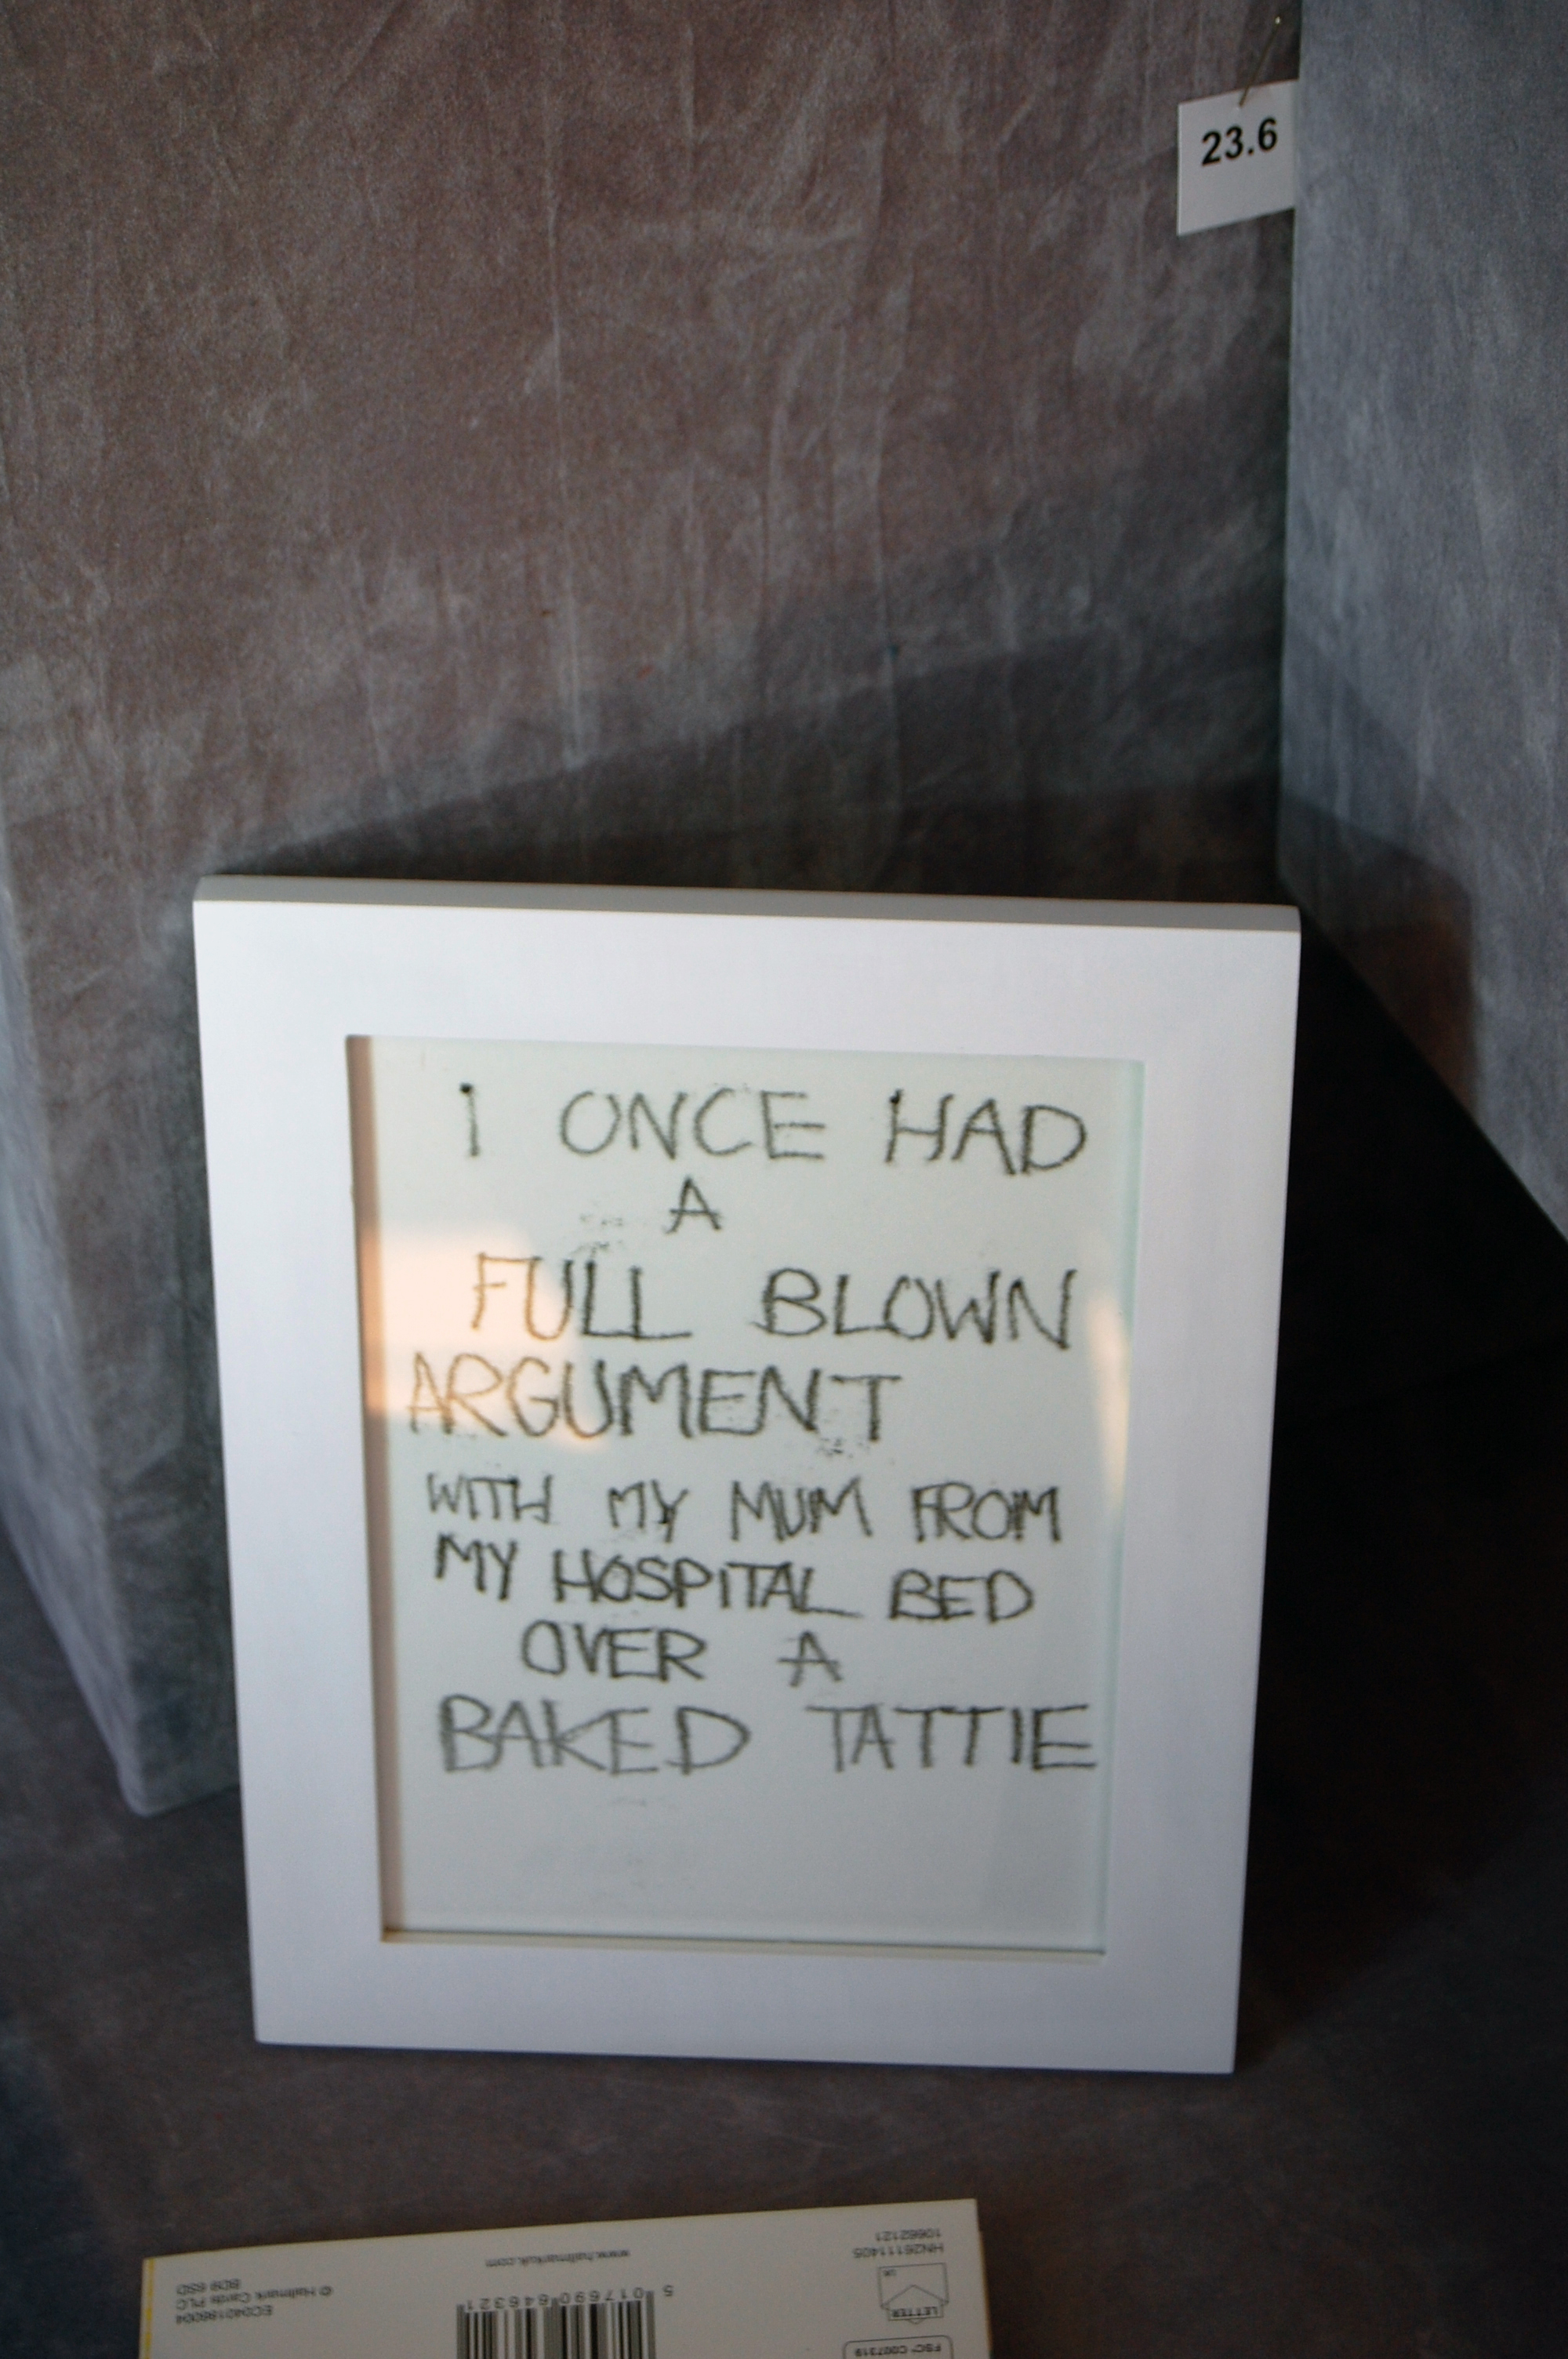 23.6
I ONCE HAD
A
FULL BLOWN
ARGUMENT
WITH MY MUM FROM
MY HOSPITAL BED
OVER A
BAKED TATTIE
FSC® C007319
LETTER
UK
HN26111405
10662121
5 017690 646321
www.hallmarkuk.com
EC040186004
© Hallmark Cards PLC
BD9 6SD